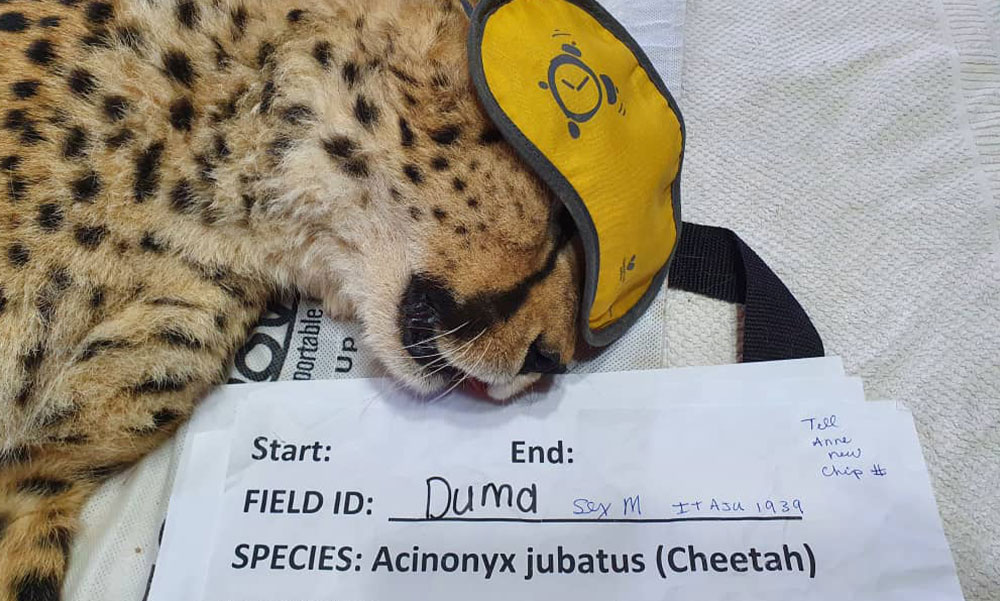 portable
Up
Start: End:
Tell
Anne
new
Chip #
FIELD ID: Duma Sex M I+ AJU 1939
SPECIES: Acinonyx jubatus (Cheetah)